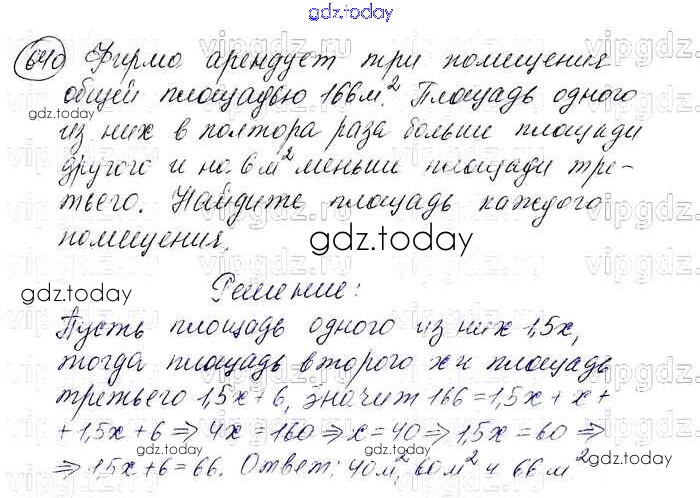 gdz.today
640 Фирма арендует три помещения
общей площадью 166м². Площадь одного
gdz.today
из них в полтора раза больше площади
другого и на 6м² меньше площади тре-
тьего. Найдите площадь каждого
помещения.
gdz.today
gdz.today
Решение:
Пусть площадь одного из них 1,5x,
тогда площадь второго x и площадь
третьего 1,5x+6, значит 166=1,5x+x+
+1,5x+6⇒4x=160⇒x=40⇒1,5x=60⇒
⇒1,5x+6=66. Ответ: 40м², 60м² и 66м²
gdz.today
gdz.today